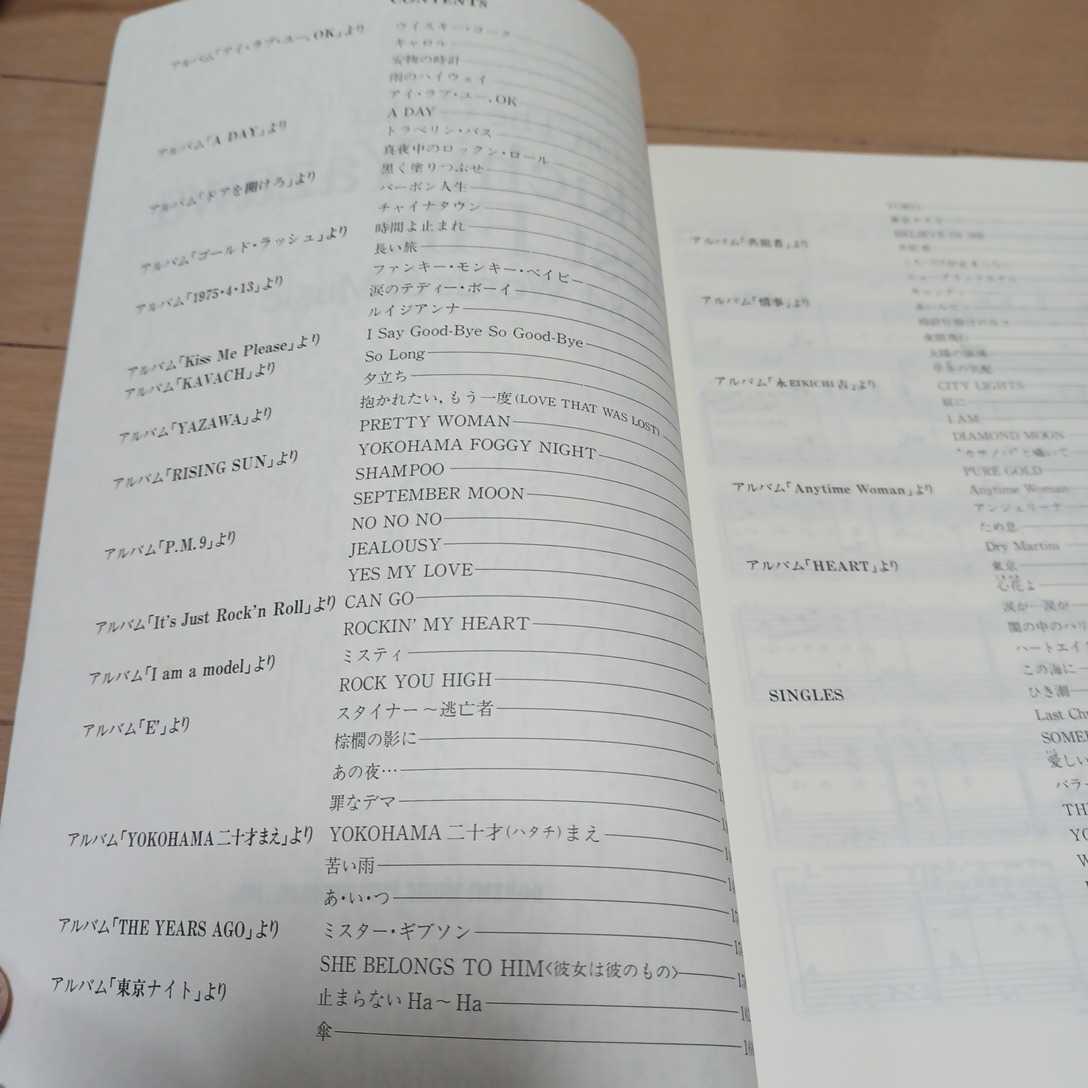 CONTENTS
アルバム「アイ・ラブ・ユー、OK」より ウイスキー・コーク
キャロル
安物の時計
雨のハイウェイ
アイ・ラブ・ユー、OK
アルバム「A DAY」より A DAY
トラベリン・バス
真夜中のロックン・ロール
アルバム「ドアを開けろ」より 黒く塗りつぶせ
バーボン人生
チャイナタウン
アルバム「ゴールド・ラッシュ」より 時間よ止まれ
長い旅
アルバム「1975・4・13」より ファンキー・モンキー・ベイビー
涙のテディー・ボーイ
ルイジアンナ
アルバム「Kiss Me Please」より I Say Good-Bye So Good-Bye
アルバム「KAVACH」より So Long
夕立ち
アルバム「YAZAWA」より 抱かれたい、もう一度(LOVE THAT WAS LOST)
PRETTY WOMAN
YOKOHAMA FOGGY NIGHT
アルバム「RISING SUN」より SHAMPOO
SEPTEMBER MOON
NO NO NO
アルバム「P.M.9」より JEALOUSY
YES MY LOVE
アルバム「It's Just Rock'n Roll」より CAN GO
ROCKIN' MY HEART
アルバム「I am a model」より ミスティ
ROCK YOU HIGH
アルバム「E'」より スタイナー〜逃亡者
棕櫚の影に
あの夜…
罪なデマ
アルバム「YOKOHAMA二十才まえ」より YOKOHAMA二十才(ハタチ)まえ
苦い雨
あ・い・つ
アルバム「THE YEARS AGO」より ミスター・ギブソン
SHE BELONGS TO HIM〈彼女は彼のもの〉
アルバム「東京ナイト」より 止まらないHa〜Ha
傘
BELIEVE IN ME
アルバム「共犯者」より
アルバム「情事」より
アルバム「永EIKICHI吉」より CITY LIGHTS
I AM
DIAMOND MOON
PURE GOLD
アルバム「Anytime Woman」より Anytime Woman
アンジェリーナ
ため息
Dry Martini
アルバム「HEART」より 東京
心花よ
涙が…涙が
闇の中のハリ
ハートエイ
この海に
SINGLES ひき潮
Last Ch
SOME
愛しい
バラ
TH
YO
W